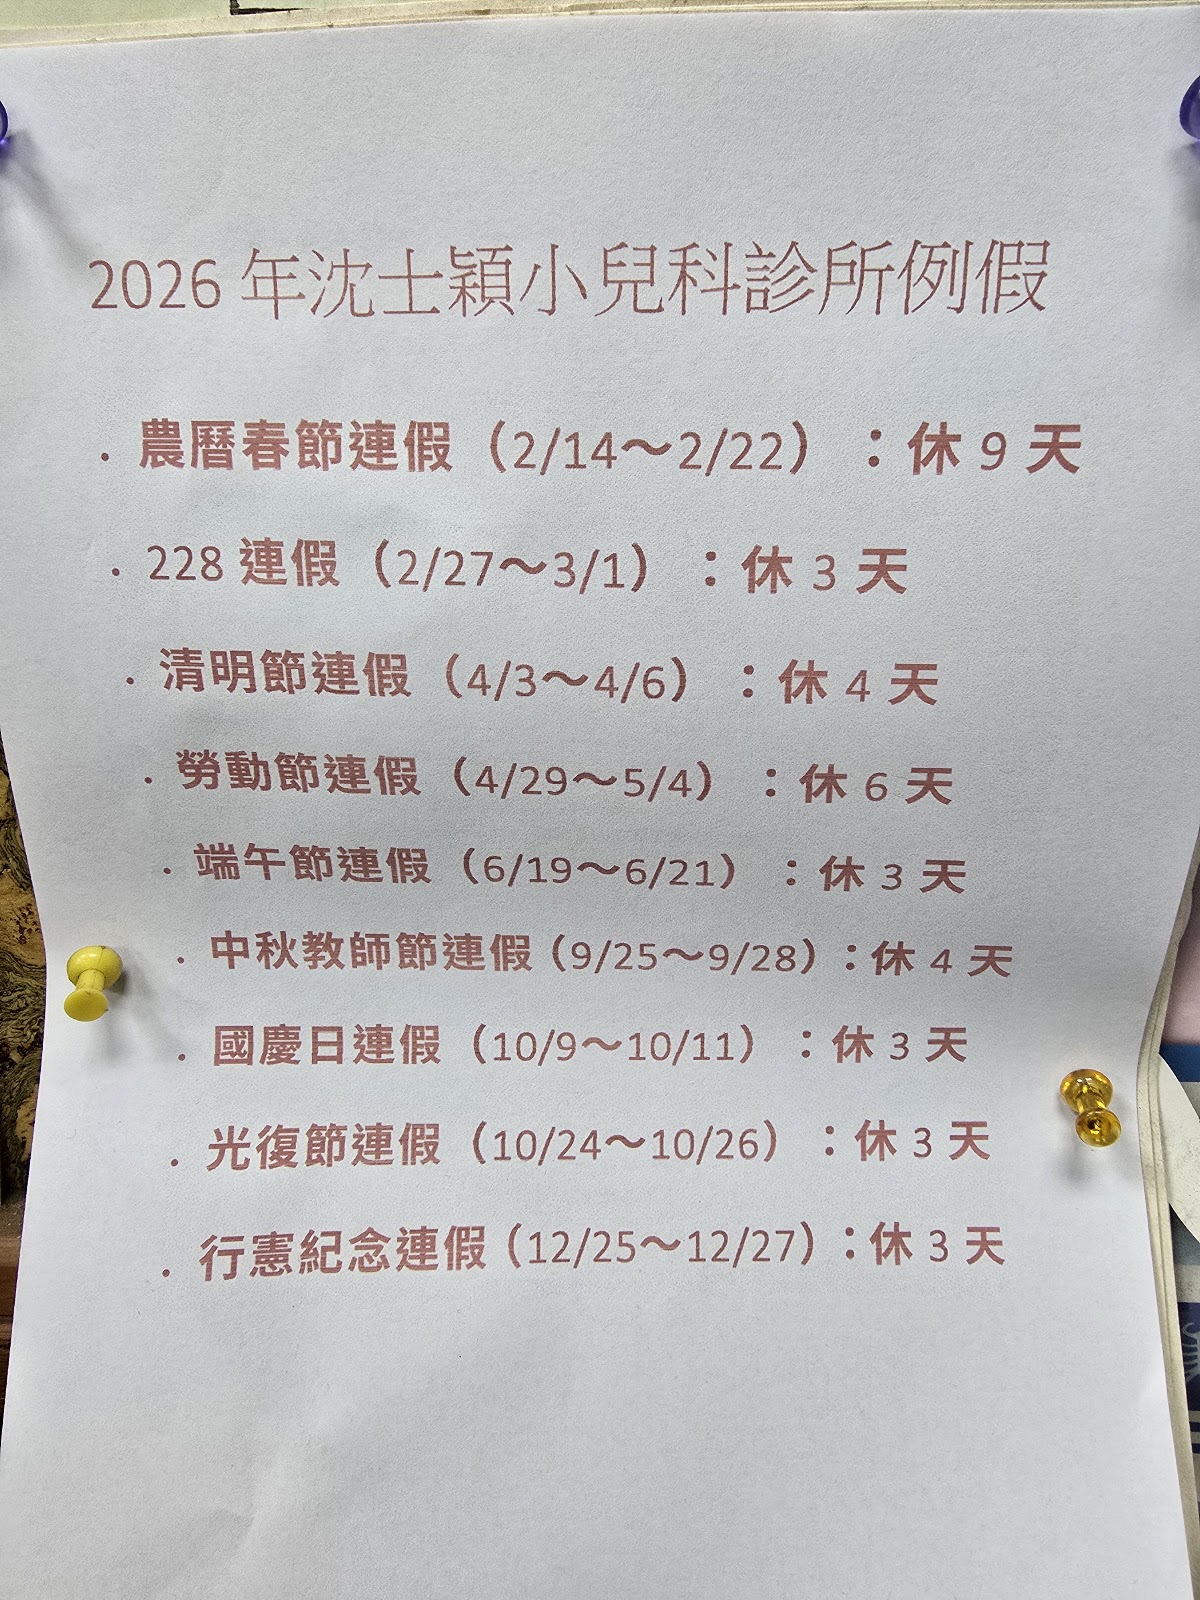 2026 年沈士穎小兒科診所例假
. 農曆春節連假（2/14～2/22）：休 9 天
. 228 連假（2/27～3/1）：休 3 天
. 清明節連假（4/3～4/6）：休 4 天
. 勞動節連假（4/29～5/4）：休 6 天
. 端午節連假（6/19～6/21）：休 3 天
. 中秋教師節連假（9/25～9/28）：休 4 天
. 國慶日連假（10/9～10/11）：休 3 天
. 光復節連假（10/24～10/26）：休 3 天
. 行憲紀念連假（12/25～12/27）：休 3 天